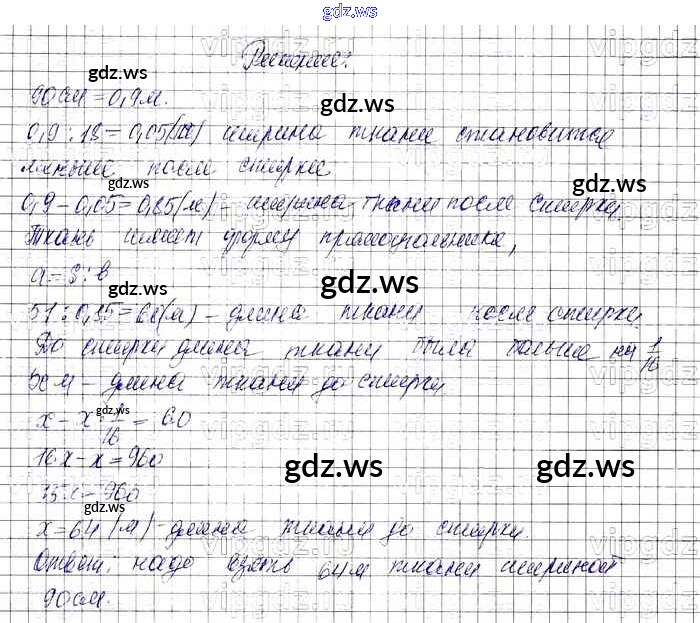 gdz.ws
Решение:
90см = 0,9м.
0,9 : 18 = 0,05(м) ширина ткани становится
меньше после стирки
0,9 – 0,05 = 0,85(м) – ширина ткани после стирки
Ткань имеет форму прямоугольника,
a = S : в
51 : 0,85 = 60(м) – длина ткани после стирки
До стирки длина ткани была больше на 1/16
x м – длина ткани до стирки
x – x · 1/16 = 60
16x – x = 960
15x = 960
x = 64 (м) – длина ткани до стирки.
Ответ: надо взять 64м ткани шириной
90см.